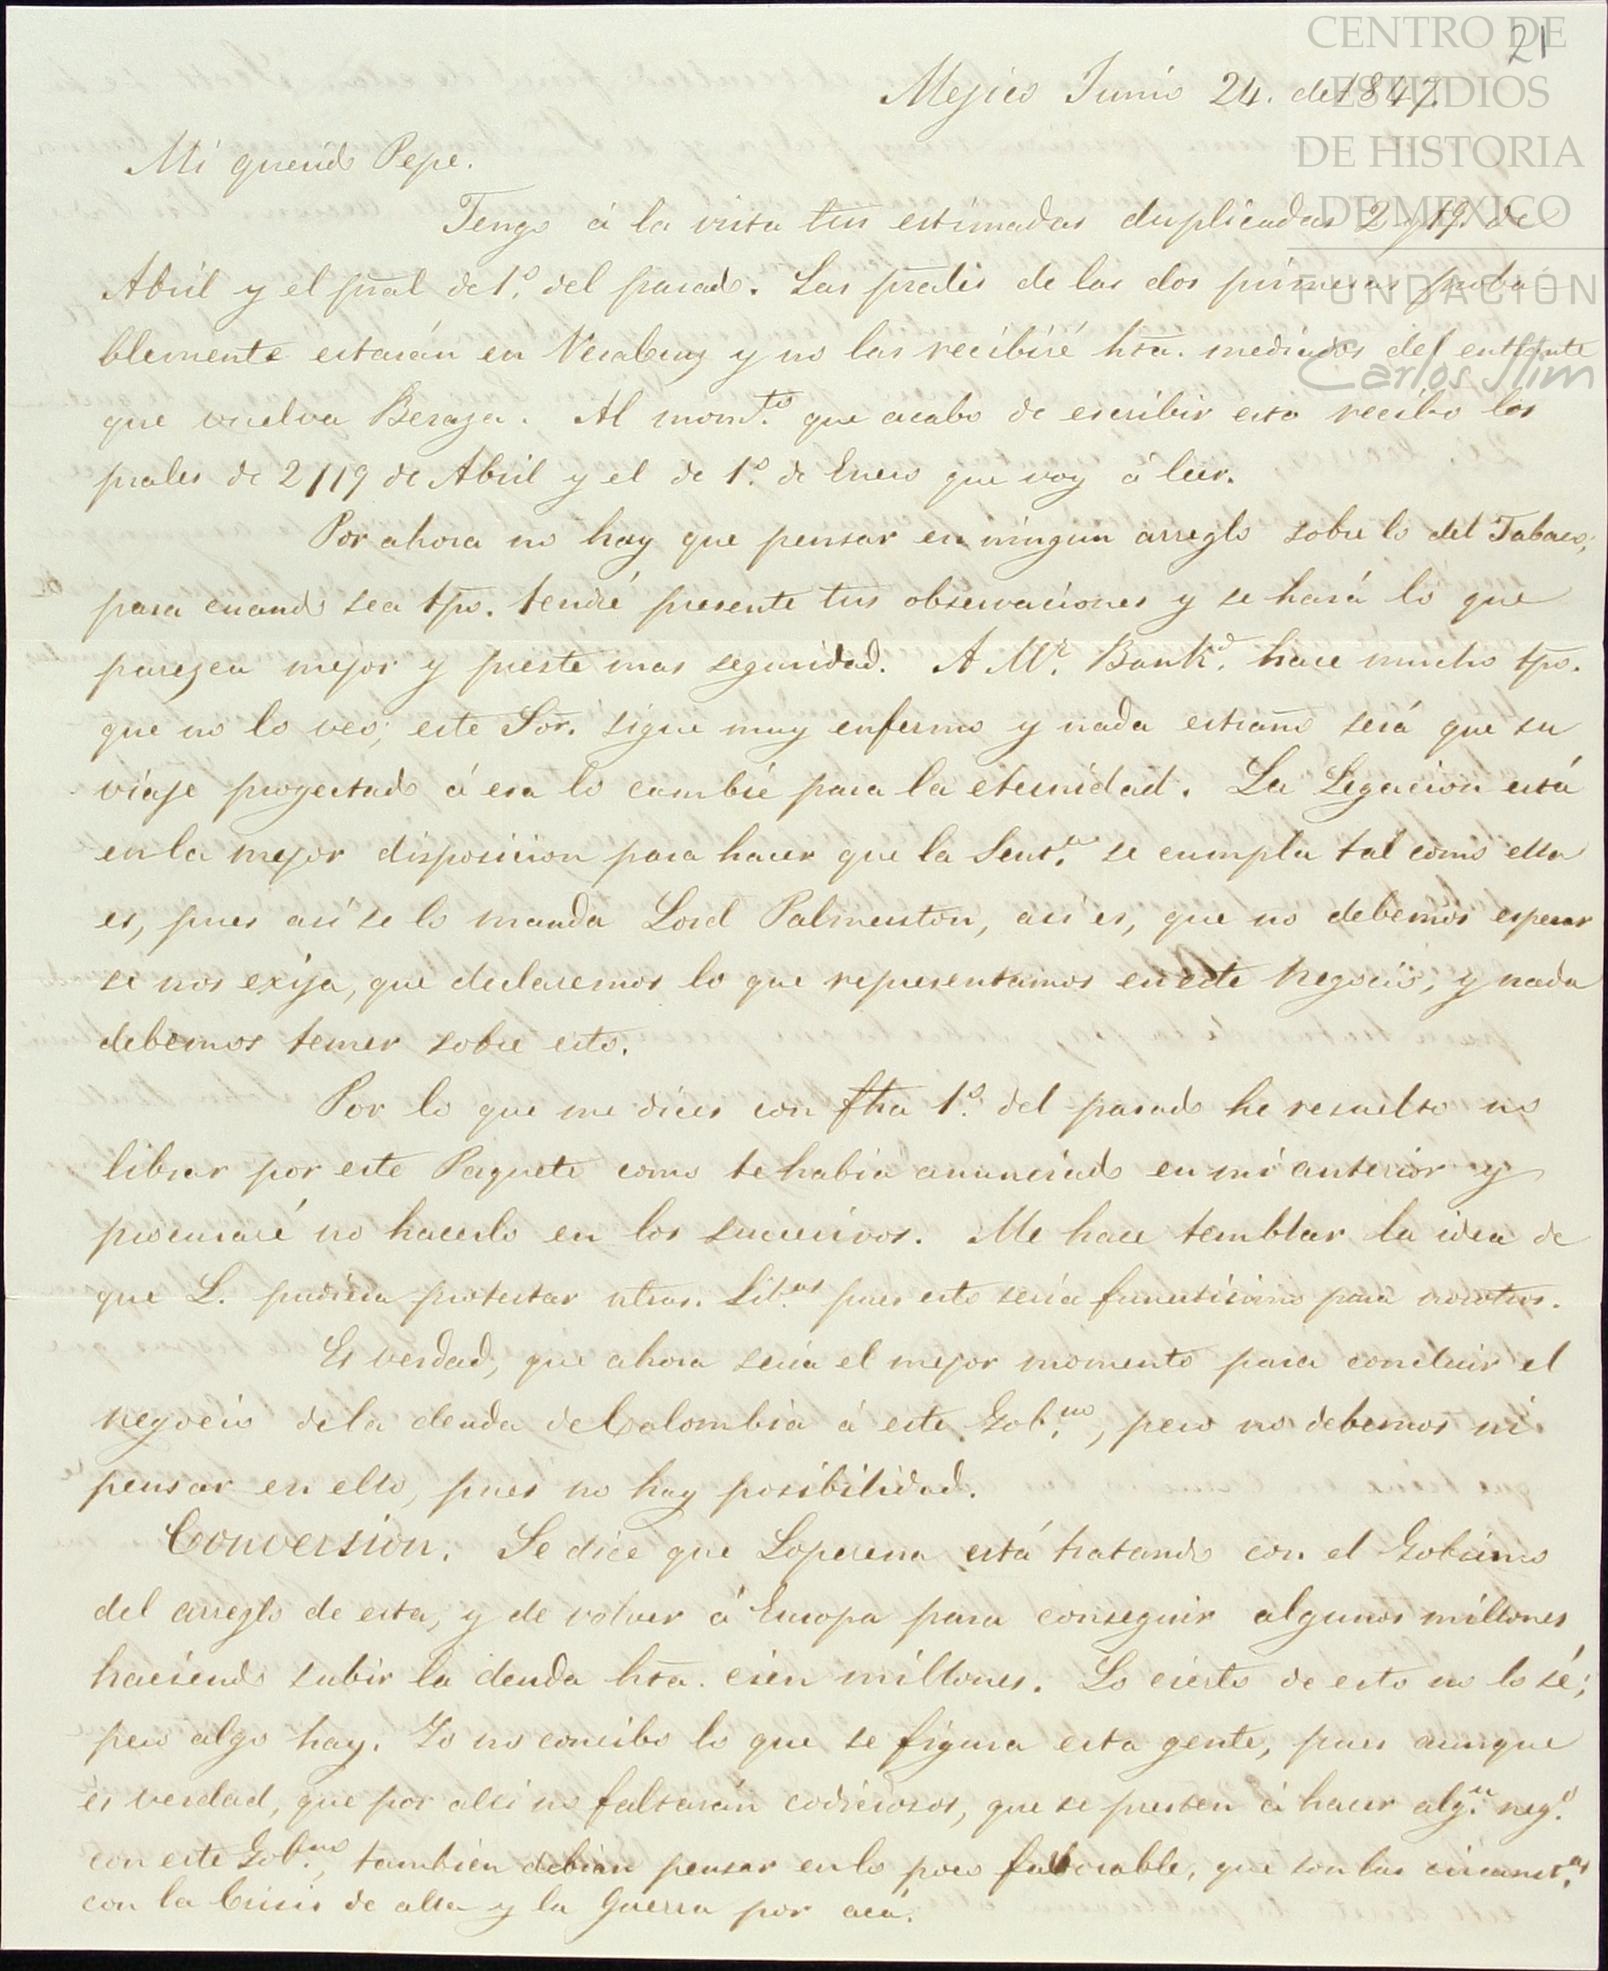 CENTRO DE
ESTUDIOS
DE HISTORIA
DE MEXICO
FUNDACIÓN
Carlos Slim
21
Mejico Junio 24. de 1847.
Mi querido Pepe.
Tengo á la vista tus estimadas duplicadas 2 y 19. de
Abril y el pral de 1º. del pasado. Las prales de las dos primeras proba-
blemente estarán en Veracruz y no las recibiré hta. mediados del entrante
que vuelva Beraza. Al momto. que acabo de escribir esto recibo los
prales de 2 / 19 de Abril y el de 1º. de Enero que voy á leer.
Por ahora no hay que pensar en ningun arreglo sobre lo del Tabaco;
para cuando sea tpo. tendré presente tus observaciones y se hará lo que
parezca mejor y preste mas seguridad. A Mr. Bankd. hace mucho tpo.
que no lo veo; este Sor. sigue muy enfermo y nada estraño será que su
viaje proyectado á esa lo cambie para la eternidad. La Legacion está
en la mejor disposicion para hacer que la Senta. se cumpla tal como ella
es, pues asi se lo manda Lord Palmerston, asi es, que no debemos esperar
se nos exija, que declaremos lo que representamos en este negocio, y nada
debemos temer sobre esto.
Por lo que me dices con fha 1º. del pasado he resuelto no
librar por este Paquete como te habia anunciado en mi anterior y
procuraré no hacerlo en los sucesivos. Me hace temblar la idea de
que L. pudiera protestar ntras. Libas. pues esto seria funestisimo para nosotros.
Es verdad, que ahora seria el mejor momento para concluir el
negocio de la deuda de Colombia á este Gobno., pero no debemos ni
pensar en ello, pues no hay posibilidad.
Conversion. Se dice que Loperena está tratando con el Gobierno
del arreglo de esta, y de volver á Europa para conseguir algunos millones
haciendo subir la deuda hta. cien millones. Lo cierto de esto no lo sé;
pero algo hay. Yo no concibo lo que se figura esta gente, pues aunque
es verdad, que por allí no faltarán codiciosos, que se presten á hacer algn. nego.
con este Gobno., tambien debian pensar en lo poco favorable, que son las circunstas.
con la Crisis de alla y la Guerra por acá.